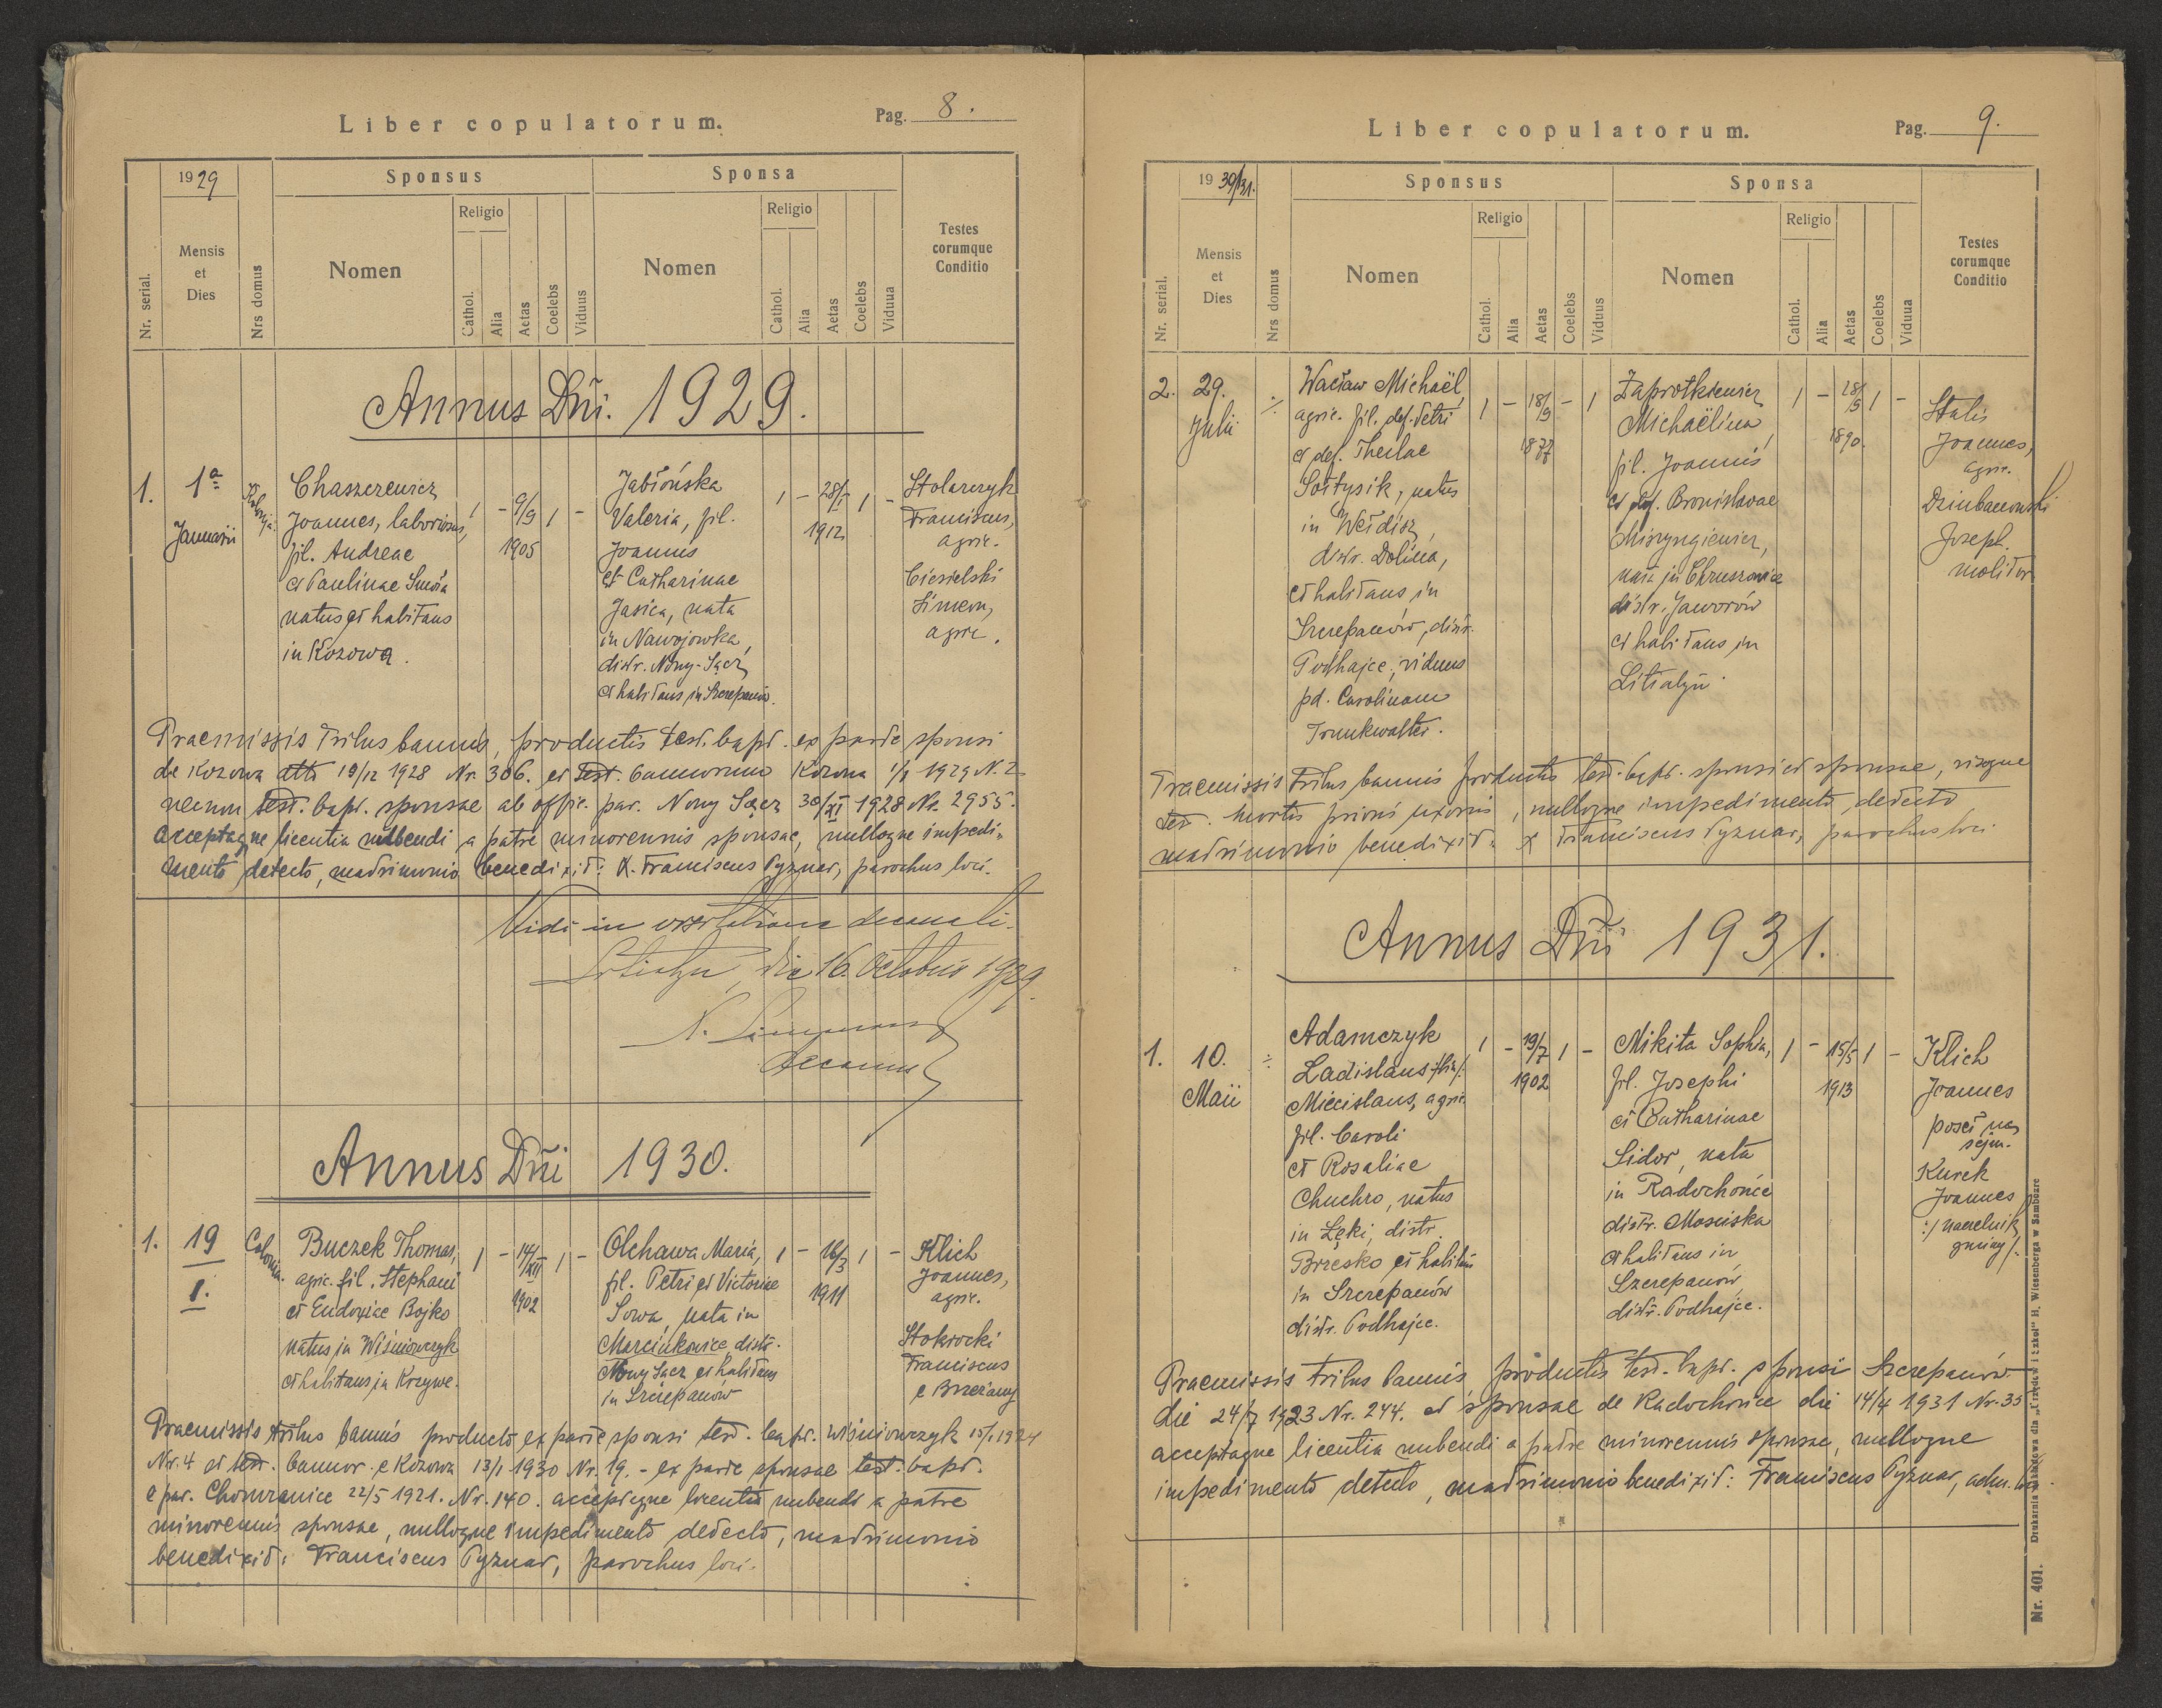 Liber copulatorum.
Pag. 8.
1929
Sponsus
Sponsa
Nr. serial.
Mensis
et
Dies
Nrs domus
Nomen
Religio
Cathol.
Alia
Aetas
Coelebs
Viduus
Nomen
Religio
Cathol.
Alia
Aetas
Coelebs
Vidua
Testes
eorumque
Conditio
Annus Dñi. 1929.
1.
1ª
Januarii
Kolonja.
Chaszczewicz
Joannes, laboriosus,
fil. Andreae
et Paulinae
natus et habitans
in Kozowa.
1 - 9/9 1 -
1905
Jabłońska
Valeria, fil.
Joannis
et Catharinae
Jasica, nata
in Nawojowka,
distr. Nowy-Sącz,
et habitans in Szczepanów.
1 - 28/I 1 -
1912
Stolarczyk
Franciscus,
agric.
Ciesielski
Simeon,
agric.
Praemissis tribus bannis, productis test. bapt. ex parte sponsi
de Kozowa 19/12 1928 Nr. 306. et test. bannorum Kozowa 1/1 1929 N. 2
necnon test. bapt. sponsae ab offic. par. Nowy Sącz 30/XI 1928 Nr. 2955.
acceptaque licentia nubendi a patre minorennis sponsae, nulloque impedi-
mento detecto, matrimonio benedixit: X. Franciscus Pyznar, parochus loci.
Vidi in visitatione decanali.
Litiatyn, die 16. Octobris 1929.
decanus
Annus Dñi 1930.
1.
19
I.
Colonia.
Buczek Thomas,
agric. fil. Stephani
et Eudoxiae Bojko
natus in Wiśniowczyk
et habitans in Krzywe.
1 - 14/XII 1 -
1902
Olchawa Maria,
fil. Petri et Victoriae
Sowa, nata in
Marcinkowice distr.
Nowy Sącz et habitans
in Szczepanów
1 - 16/3 1 -
1911
Klich
Joannes,
agric.
Stokrocki
Franciscus
e Brzeżany
Praemissis tribus bannis producto ex parte sponsi test. bapt. Wiśniowczyk 15/1 1924
Nr. 4 et test. bannor. e Kozowa 13/1 1930 Nr. 19. - ex parte sponsae test. bapt.
e par. Chomranice 22/5 1921. Nr. 140. acceptaque licentia nubendi a patre
minorennis sponsae, nulloque impedimento detecto, matrimonio
benedixit: Franciscus Pyznar, parochus loci.
Liber copulatorum.
Pag. 9.
1930/31.
Sponsus
Sponsa
Nr. serial.
Mensis
et
Dies
Nrs domus
Nomen
Religio
Cathol.
Alia
Aetas
Coelebs
Viduus
Nomen
Religio
Cathol.
Alia
Aetas
Coelebs
Vidua
Testes
eorumque
Conditio
2.
29.
Julii
Wacław Michaël,
agric. fil. def. Petri
et def. Theclae
Sołtysik, natus
in Wełdisz,
distr. Dolina,
et habitans in
Szczepanów, distr.
Podhajce, viduus
pd. Carolinam
Trunkwalter.
1 - 18/9 - 1
1877
Zaprotkiewicz
Michaëlina,
fil. Joannis
et def. Bronislavae
nata in Chruszowice
distr. Jaworów
et habitans in
Litiatyn.
1 - 28/9 1 -
1890.
Stalis
Joannes,
agric.
Dziubanowski
Joseph.
molitor
Praemissis tribus bannis productis test. bapt. sponsi et sponsae, visoque
test. mortis prioris uxoris, nulloque impedimento detecto
matrimonio benedixit: X Franciscus Pyznar, parochus loci.
Annus Dñi 1931.
1.
10.
Maii
Adamczyk
Ladislaus
Miecislaus, agric.
fil. Caroli
et Rosaliae
Chuchro, natus
in Łęki, distr.
Brzesko et habitans
in Szczepanów
distr. Podhajce.
1 - 19/7 1 -
1902
Mikita Sophia,
fil. Josephi
et Catharinae
Sidor, nata
in Radochońce
distr. Mościska
et habitans in
Szczepanów,
distr. Podhajce.
1 - 15/5 1 -
1913
Klich
Joannes
poseł na
sejm.
Kurek
Joannes
:/naczelnik
gminy/:
Praemissis tribus bannis, productis test. bapt. sponsi Szczepanów
die 24/7 1923 Nr. 244. et sponsae de Radochońce die 14/4 1931 Nr. 35
acceptaque licentia nubendi a patre minorennis sponsae, nulloque
impedimento detecto, matrimonio benedixit: Franciscus Pyznar, adm. loci.
Nr. 401.
Drukarnia nakładowa dla „Urzędów i szkół" H. Wiesenberga w Samborze